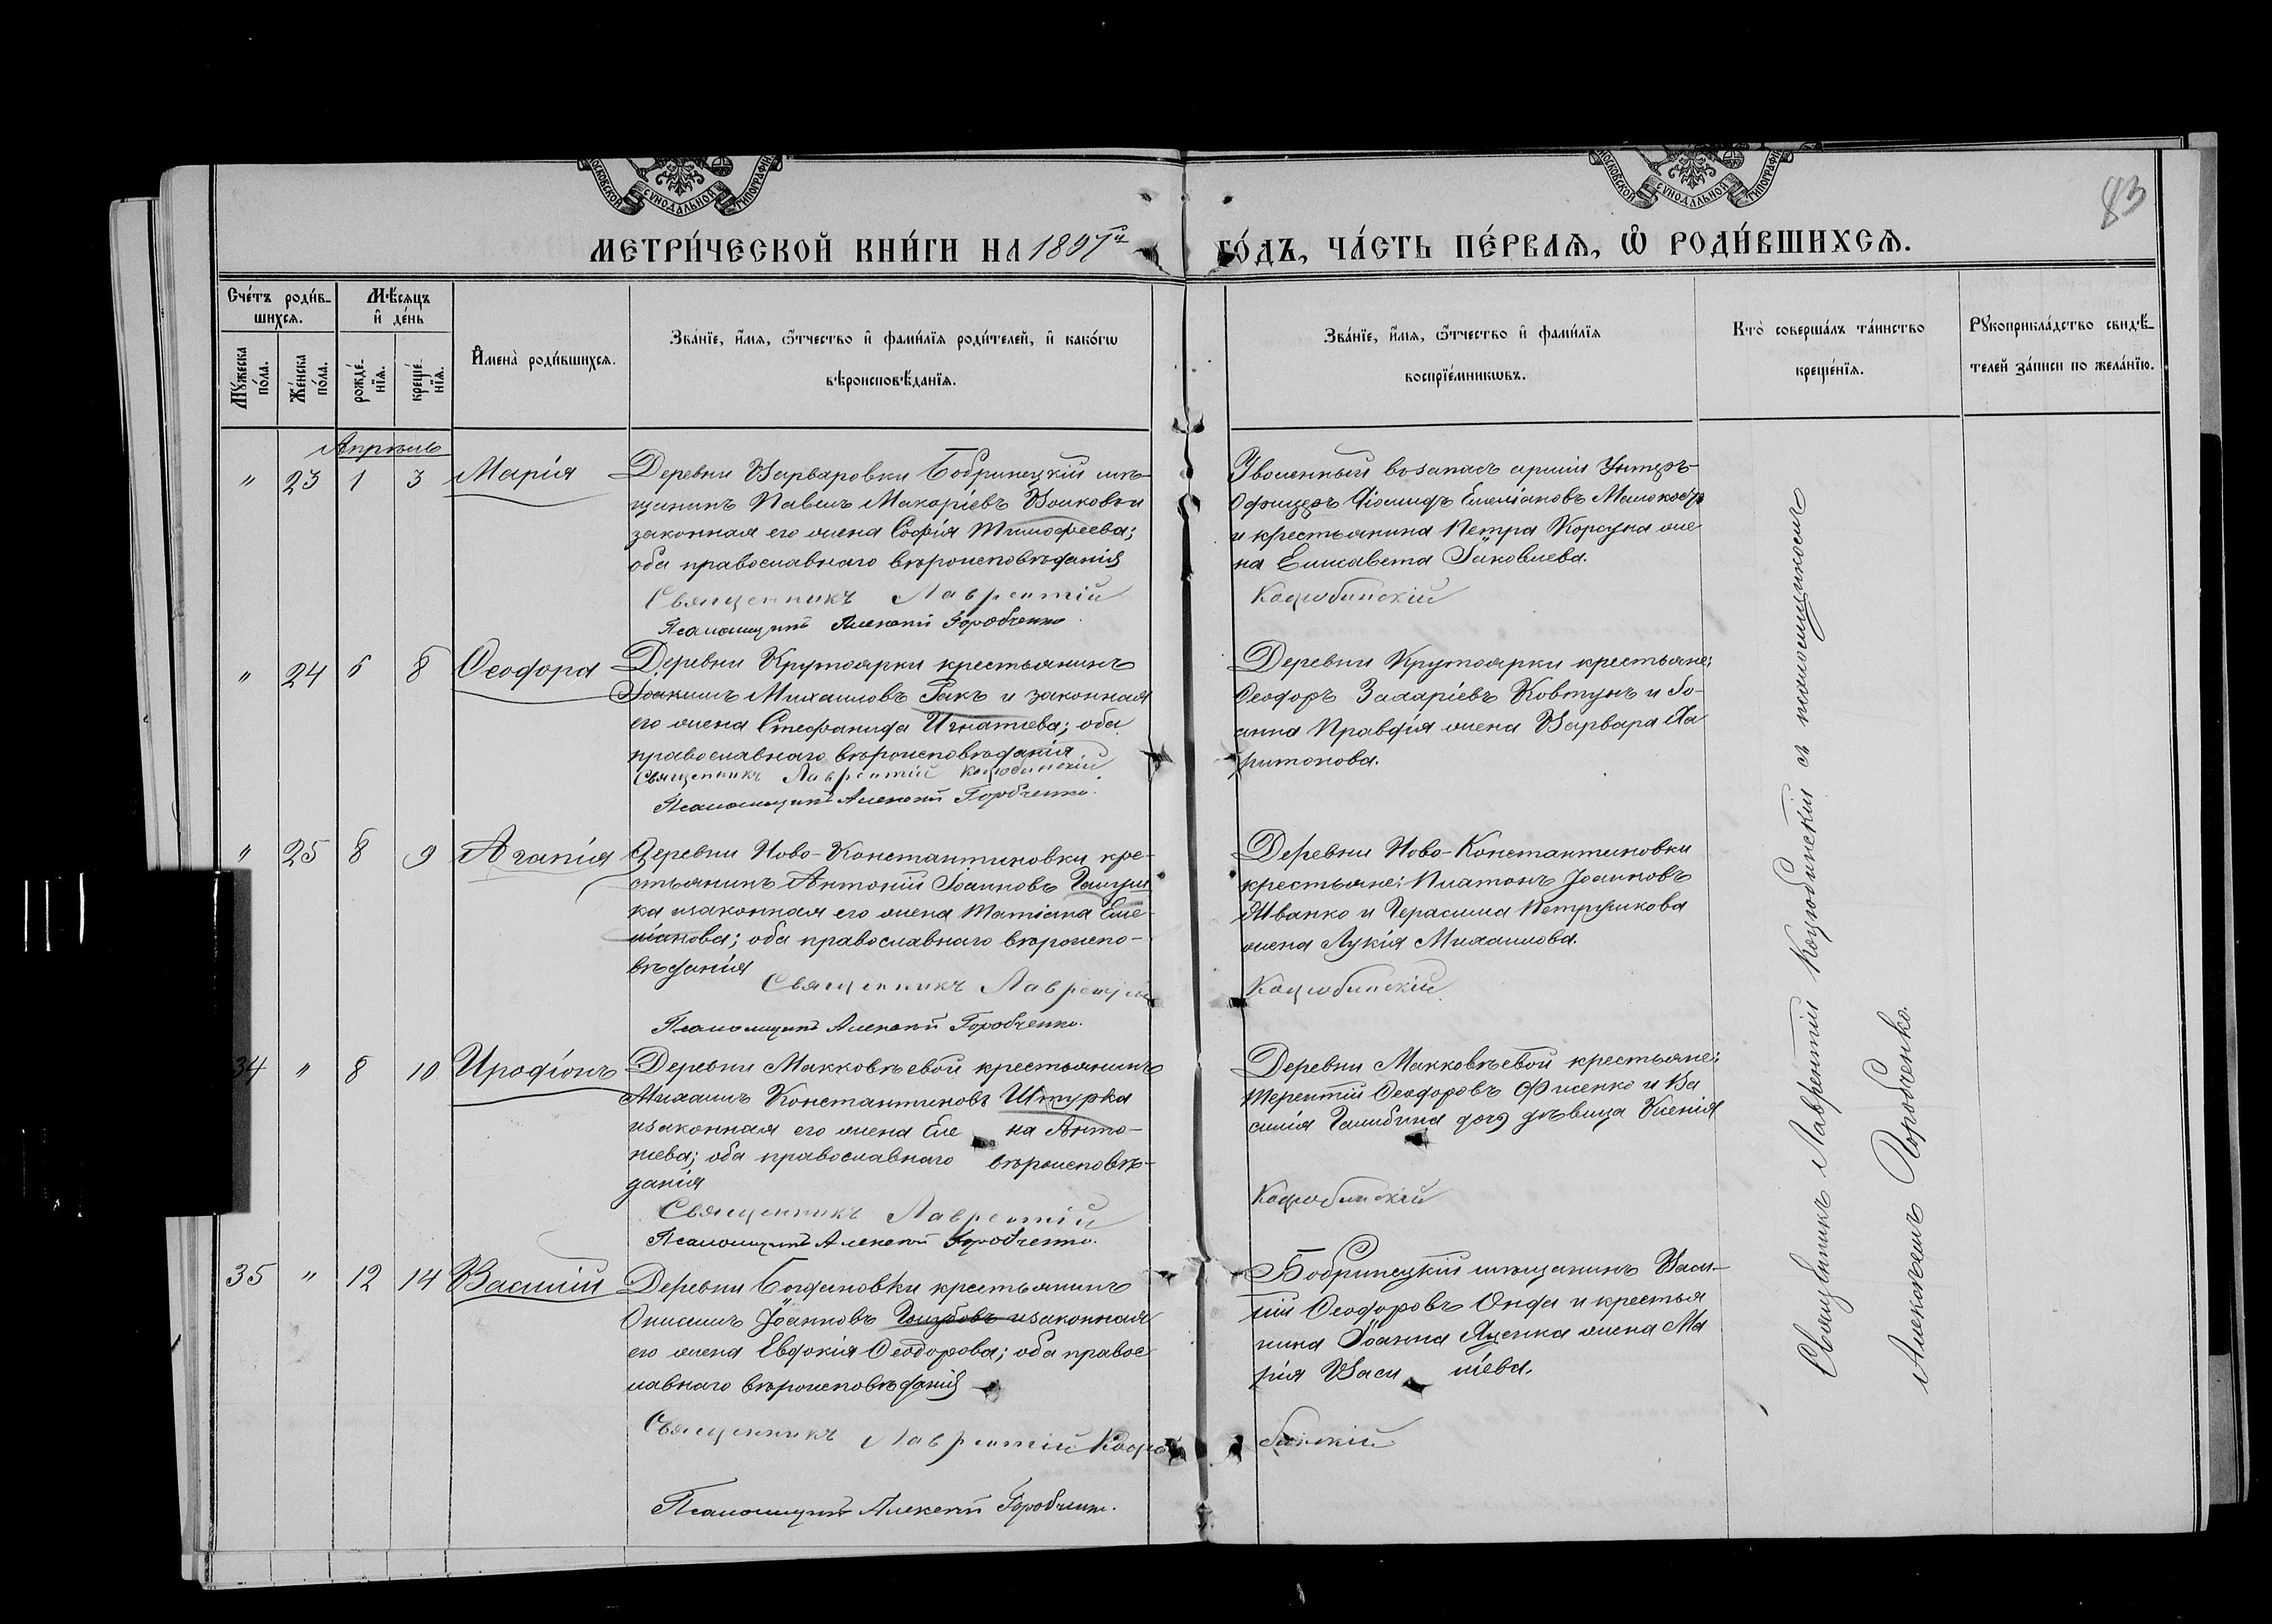 МОСКОВСКОЙ СѴНОДАЛЬНОЙ ТИПОГРАФІИ
МОСКОВСКОЙ СѴНОДАЛЬНОЙ ТИПОГРАФІИ
83
МЕТРИ́ЧЕСКОЙ КНИ́ГИ НА 1897й
ГО́ДЪ, ЧА́СТЬ ПЕ́РВАЯ, Ѡ РОДИ́ВШИХСЯ.
Сче́тъ роди́в-
шихся.
Мѣ́сяцъ
и҆ де́нь
Мꙋ́жеска
по́ла.
Же́нска
по́ла.
рожде́-
нїя.
креще́-
нїя.
И҆мена̀ роди́вшихся.
Зва́нїе, и҆́мя, ѻ҆́тчество и҆ фами́лїя роди́телей, и҆ како́гѡ
вѣроисповѣ́данїя.
Зва́нїе, и҆́мя, ѻ҆́тчество и҆ фами́лїя
воспрїе́мникѡвъ.
Кто̀ соверша́лъ та́инство
креще́нїя.
Рꙋкоприкла́дство свидѣ́-
телей за́писи по жела́нїю.
Апрѣль
" 23 1 3 Марія
Деревни Варваровки Бобринецкій мѣ-
щанинъ Павелъ Макаріевъ Волковъ и
законная его жена Софія Тимофеева;
оба православнаго вѣроисповѣданія
Священникъ Лаврентій
Псаломщикъ Алексѣй Горобченко.
Уволенный возапасъ арміи Унтеръ-
Офицеръ Емеліановъ
и крестьянина Петра Корсуна же
на Елисавета Іаковлева.
Коцюбинскій
" 24 6 8 Ѳеодора
Деревни Крутоярки крестьянинъ
Іоакимъ Михаиловъ Гакъ и законная
его жена Стефанида Игнатіева; оба
православнаго вѣроисповѣданія
Священникъ Лаврентій Коцюбинскій
Псаломщикъ Алексѣй Горобченко.
Деревни Крутоярки крестьяне:
Ѳеодоръ Захаріевъ Ковтунъ и Іо-
анна жена Варвара Ха
ритонова.
" 25 8 9 Агапія
Деревни Ново-Константиновки кре-
стьянинъ Антоній Іоанновъ
ка изаконная его жена Татіана Еме-
ліанова; оба православнаго вѣроиспо-
вѣданія
Священникъ Лаврентій
Псаломщикъ Алексѣй Горобченко.
Деревни Ново-Константиновки
крестьяне: Платонъ Іоанновъ
Иванко и Герасима Петрушкова
жена Лукія Михаилова.
Коцюбинскій
34 " 8 10 Иродіонъ
Деревни Макковѣевой крестьянинъ
Михаилъ Константиновъ Штурка
изаконная его жена Еле на Анто-
нева; оба православнаго вѣроисповѣ-
данія
Священникъ Лаврентій
Псаломщикъ Алексѣй Горобченко.
Деревни Макковѣевой крестьяне:
Терентій Ѳеодоровъ Фисенко и Ва
силія дочь дѣвица Ксенія
Коцюбинскій
35 " 12 14 Василій
Деревни Богдановки крестьянинъ
Онисимъ Іоанновъ изаконная
его жена Евдокія Ѳеодорова; оба правос
лавнаго вѣроисповѣданія
Священникъ Лаврентій Коцю
Псаломщикъ Алексѣй Горобченко.
Бобринецкій мѣщанинъ Васи-
лій Ѳеодоровъ Онда и крестья
нина Іоанна Яценка жена Ма
рія Васи ліева.
бинскій
Священникъ Лаврентій Коцюбинскій съ псаломщикомъ
Алексѣемъ Горобченко.